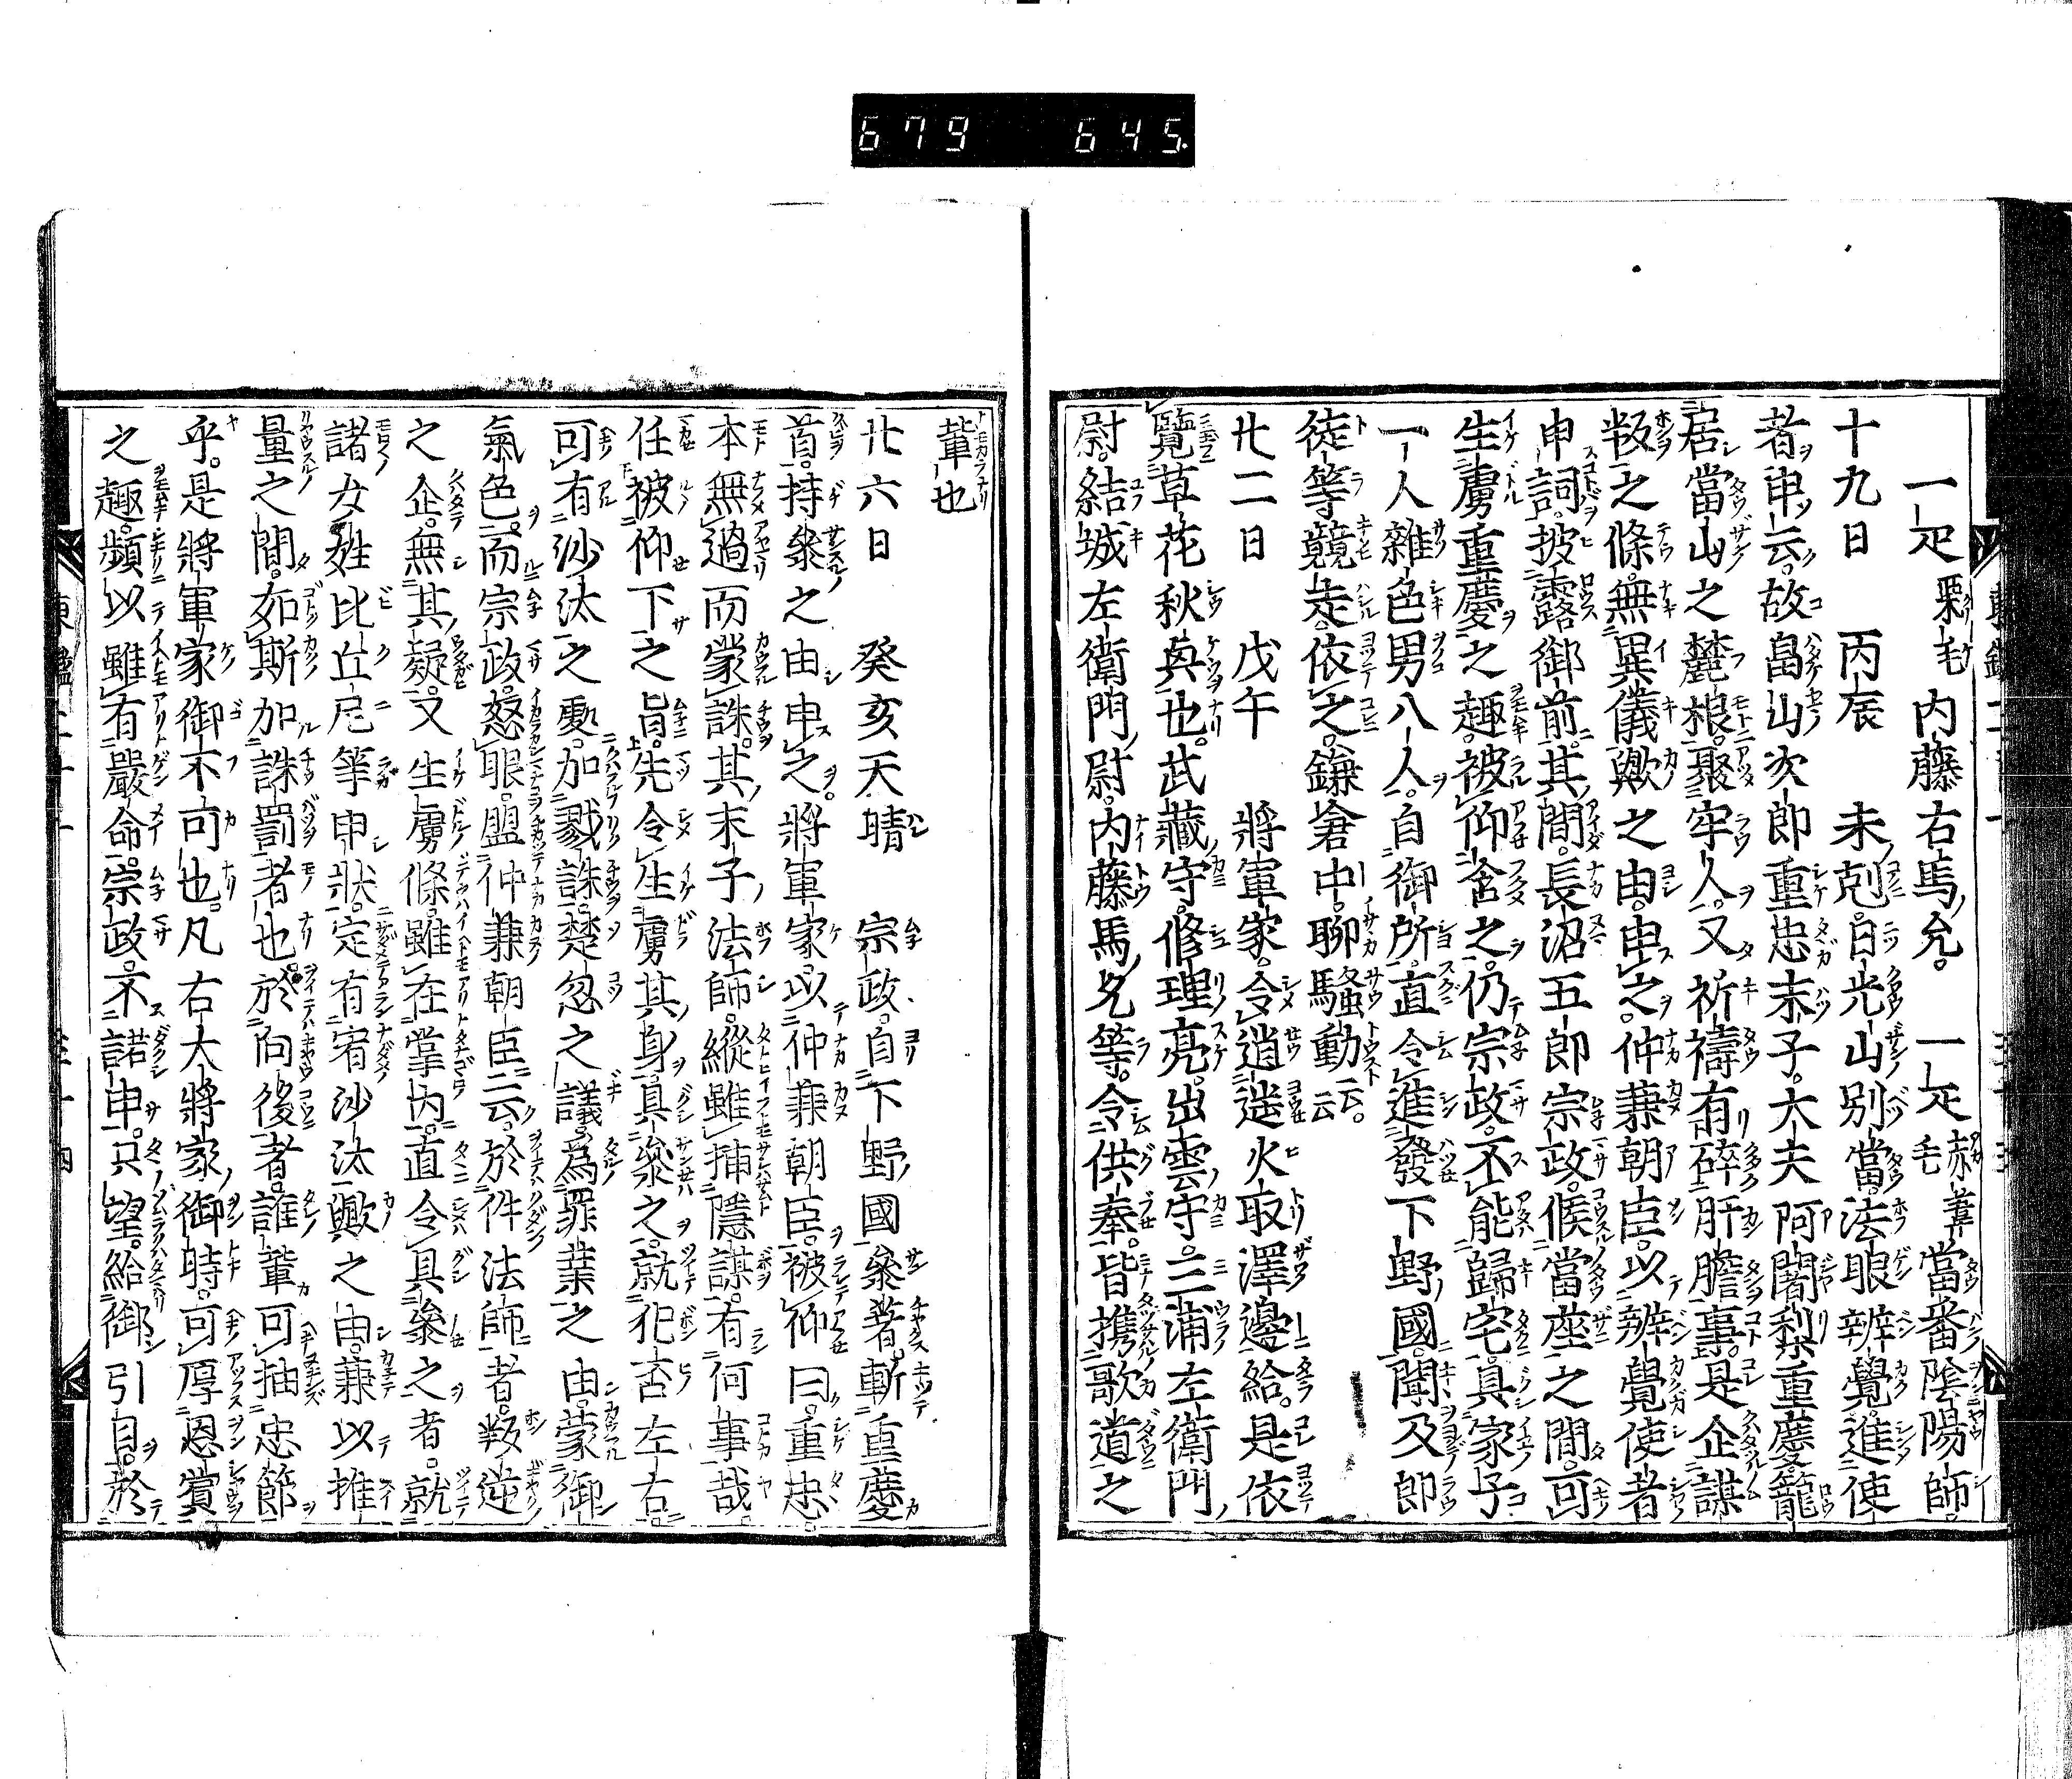 679 645
一疋 栗毛 内藤右馬允。 一疋 赫葦毛 當番陰陽師。
十九日 丙辰 未尅。日光山別當法眼辨覺。進使
者申云。故畠山次郎重忠末子。大夫阿闍梨重慶籠
居當山之麓根。聚牢人。又祈禱有碎肝膽事。是企謀
叛之條。無異儀歟之由。申之。仲兼朝臣。以辨覺使者
申詞。披露御前。其間。長沼五郎宗政。候當座之間。可
生虜重慶之趣。被仰含之。仍宗政。不能歸宅。具家子
一人雜色男八人。自御所。直令進發下野國。聞及郎
徒等競走。依之。鎌倉中。聊騷動云云。
廿二日 戊午 將軍家。令逍遥火取澤邊給。是依
覽草花秋興也。武藏守。修理亮。出雲守。三浦左衛門
尉。結城左衛門尉。内藤馬允等。令供奉。皆携歌道之
輩也
廿六日 癸亥天晴 宗政。自下野國參著。斬重慶
首。持參之由申之。將軍家。以仲兼朝臣。被仰曰。重忠。
本無過而蒙誅。其末子法師。縱雖插隱謀。有何事哉。
任被仰下之旨。先令生虜其身。具參之。就犯否左右。
可有沙汰之處。加戮誅。楚忽之議。爲罪業之由。蒙御
氣色。而宗政。怒眼。盟仲兼朝臣云。於件法師者。叛逆
之企。無其疑。又生虜條。雖在掌内。直令具參之者。就
諸女姓比丘尼等申狀。定有宥沙汰歟之由。兼以推
量之間。如斯加誅罰者也。於向後者。誰輩可抽忠節
乎。是將軍家御不可也。凡右大將家御時。可厚恩賞
之趣。頻以雖有嚴命。宗政。不諾申。只望。給御引目。於